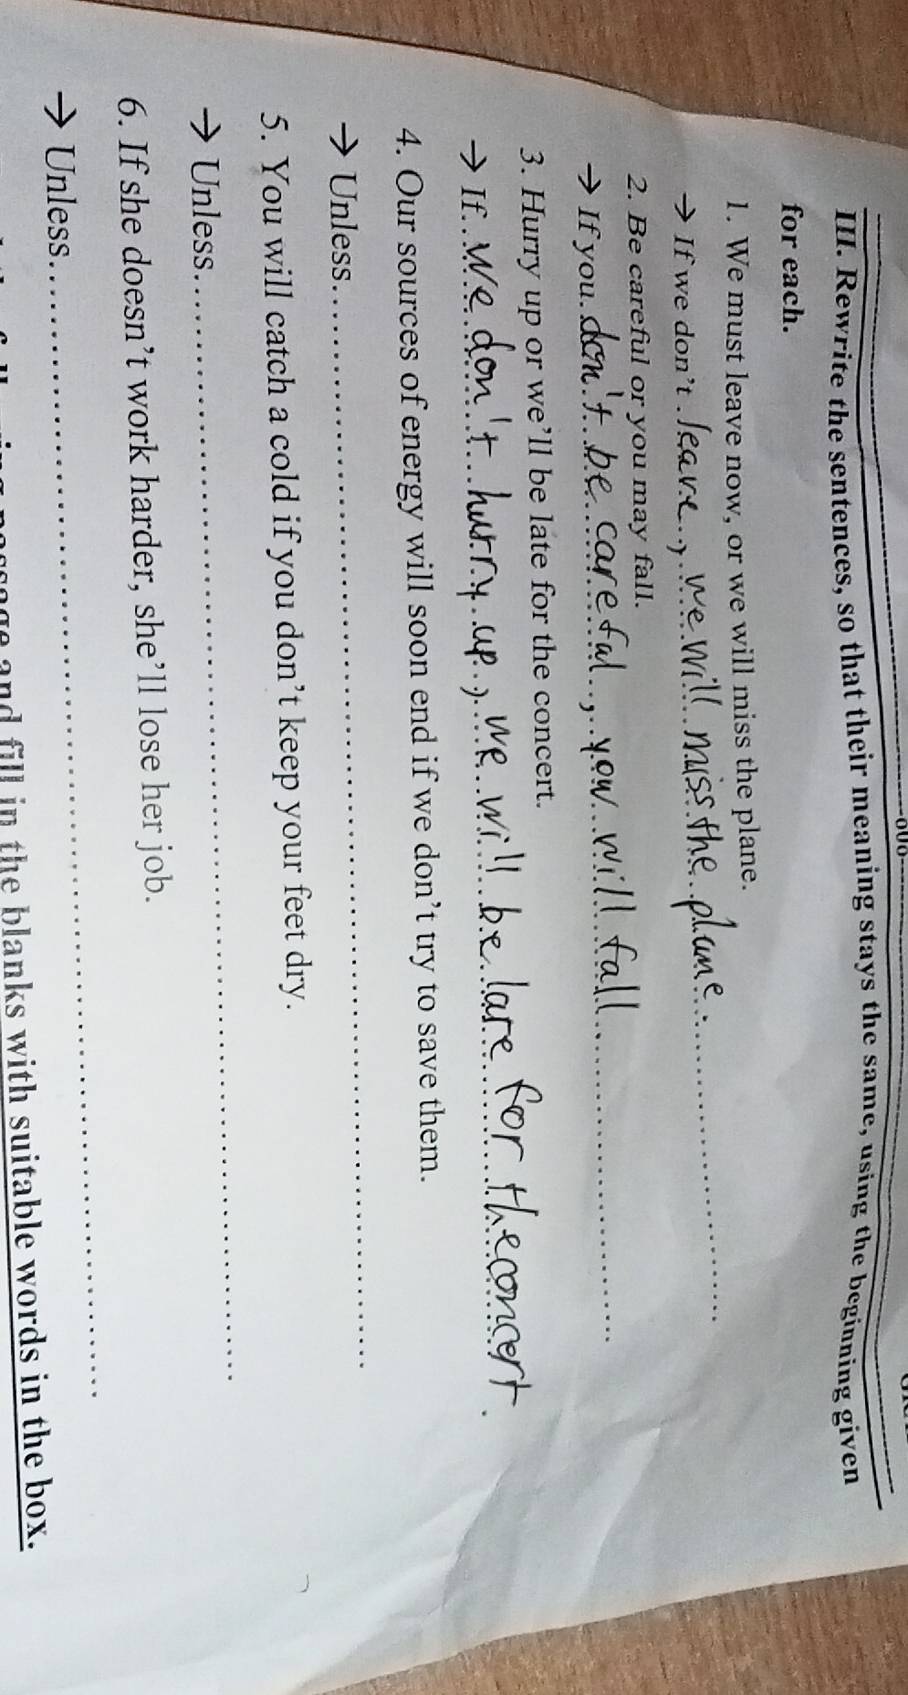 III. Rewrite the sentences, so that their meaning stays the same, using the beginning given
for each.
1. We must leave now, or we will miss the plane.
→ If we don't leave, we will miss the plane.
2. Be careful or you may fall.
→ If you don't be careful, you will fall
3. Hurry up or we'll be late for the concert.
→ If we don't hurry up, we will be lare for the concert.
4. Our sources of energy will soon end if we don't try to save them.
→ Unless
5. You will catch a cold if you don't keep your feet dry.
→ Unless
6. If she doesn't work harder, she'll lose her job.
→ Unless
and fill in the blanks with suitable words in the box.